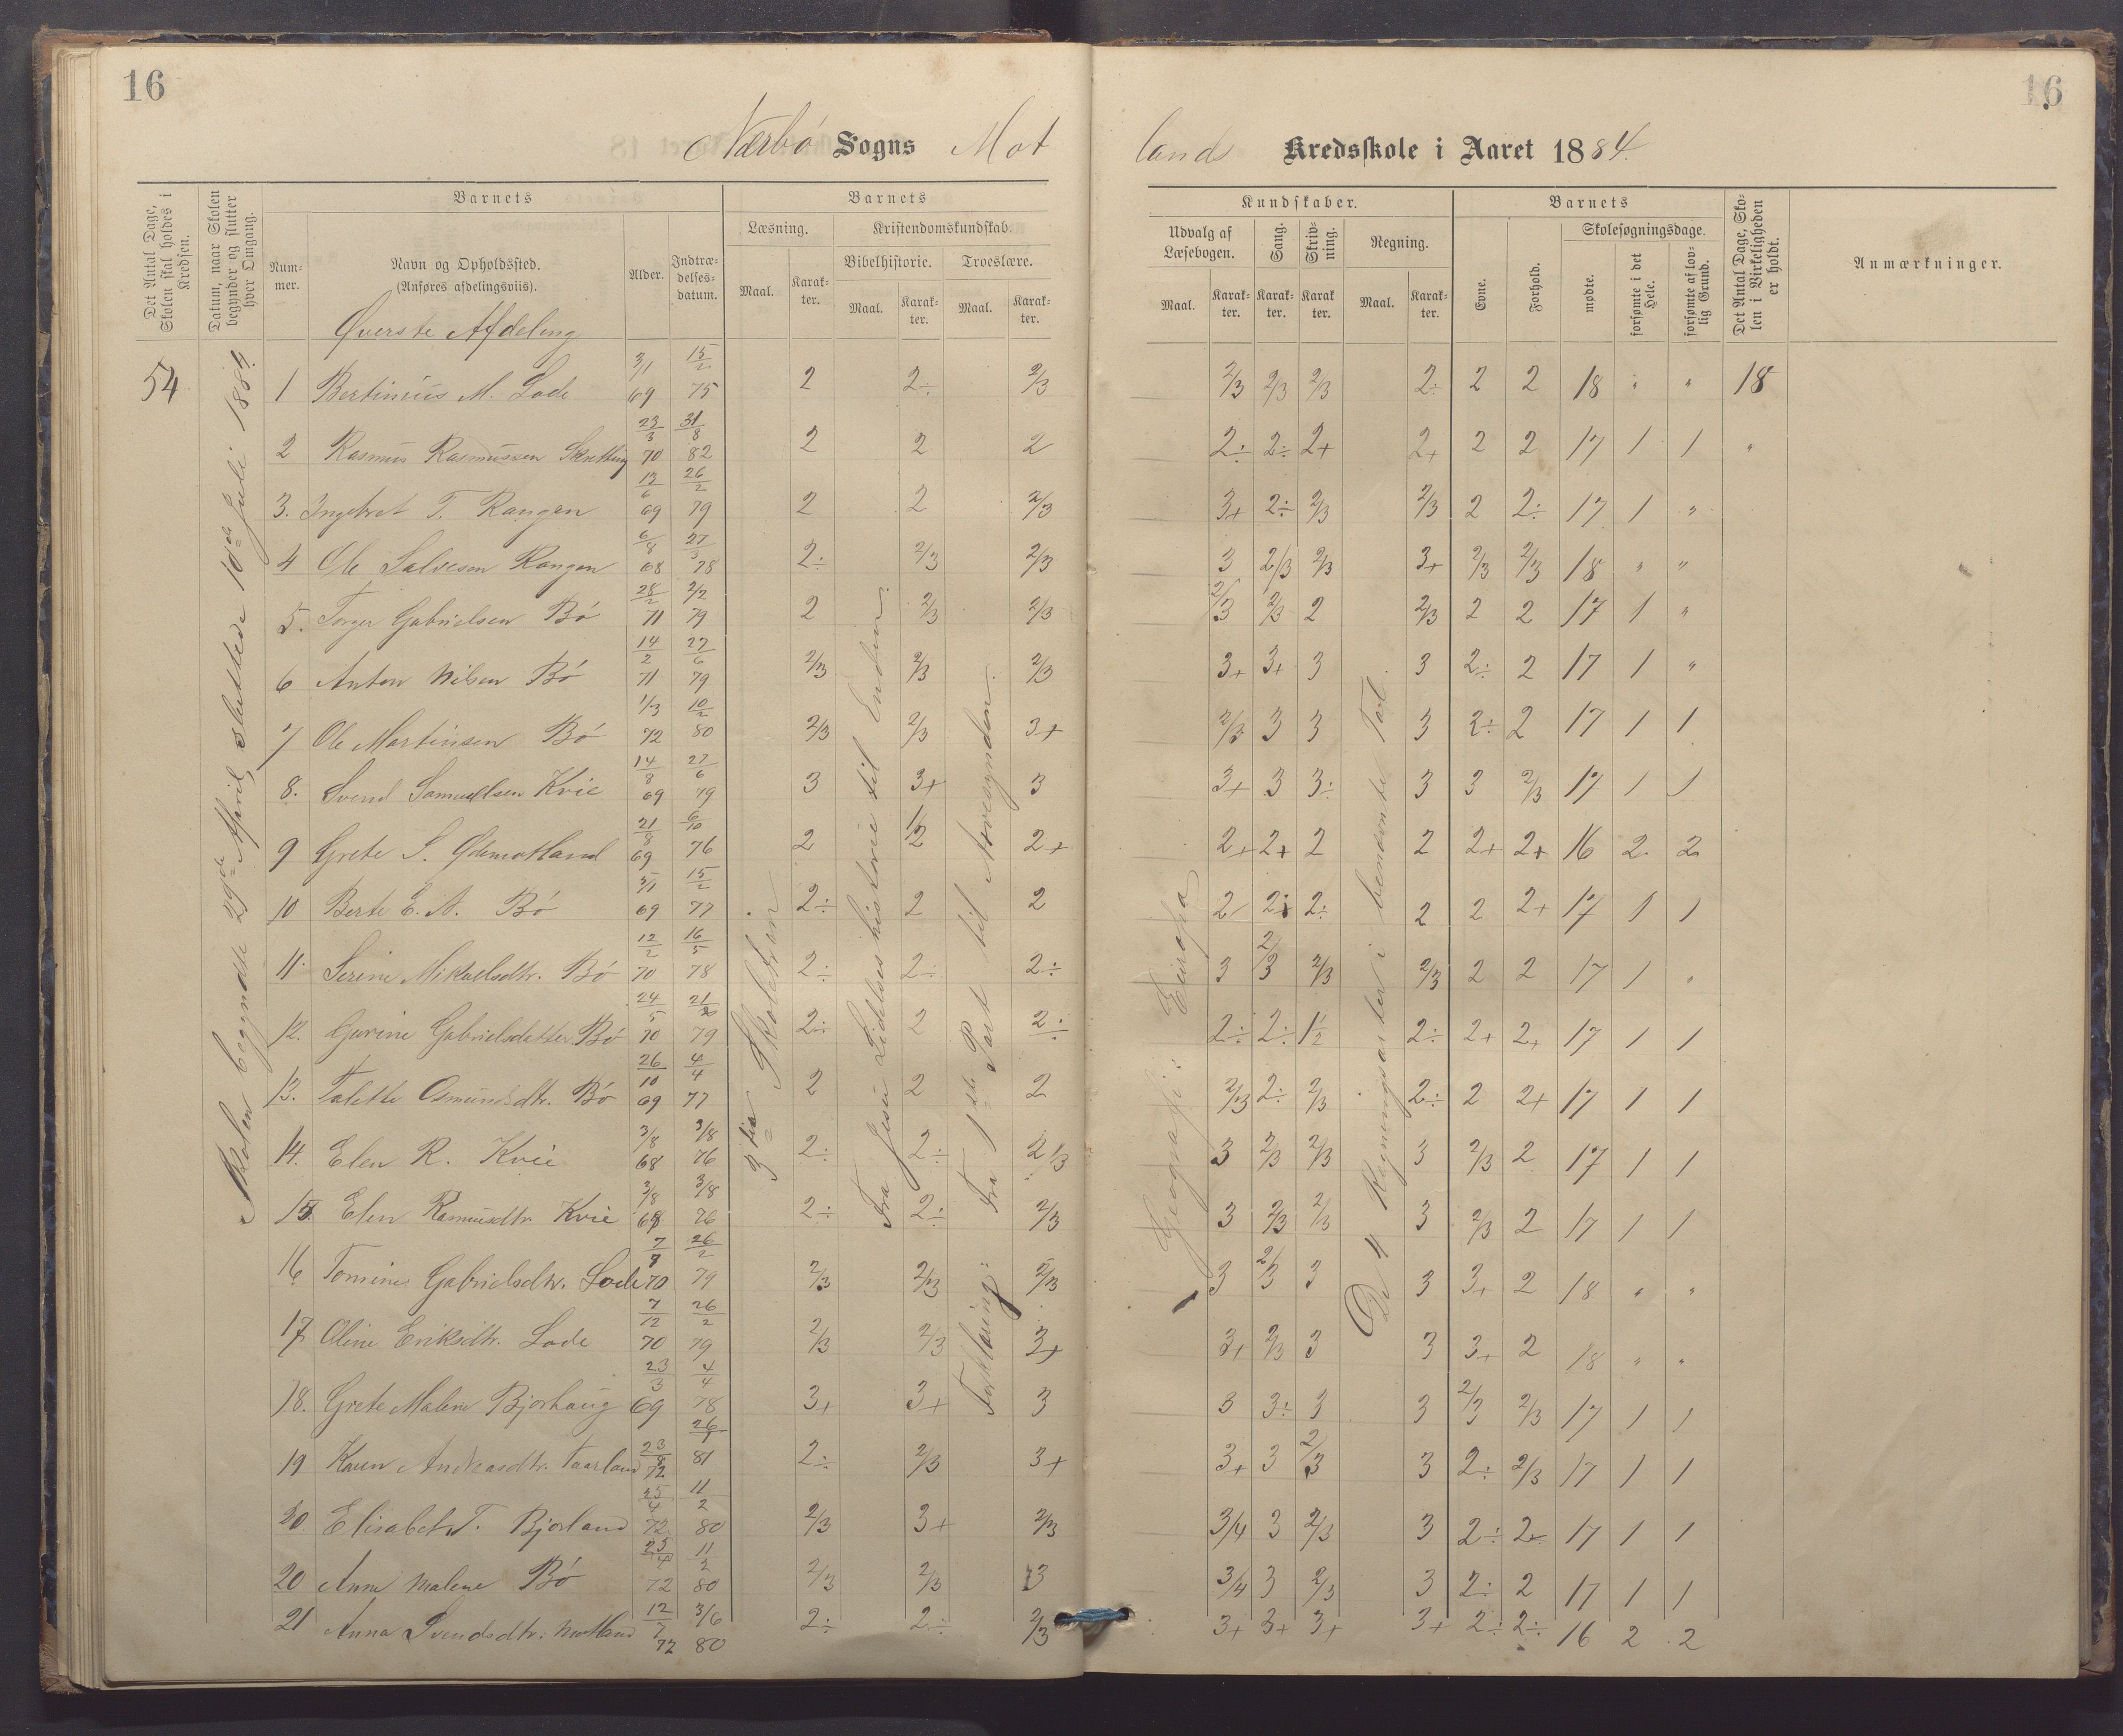 16
16
Nærbø Sogns Mot
lands Kredsskole i Aaret 1884.
Det Antal Dage, Skolen skal holdes i Kredsen.
Datum, naar Skolen begynder og slutter hver Omgang.
Barnets
Num-mer.
Navn og Opholdssted.
(Anføres afdelingsviis).
Alder.
Indtræ-delses-datum.
Barnets
Læsning.
Maal.
Karak-ter.
Kristendomskundskab.
Bibelhistorie.
Maal.
Karak-ter.
Troeslære.
Maal.
Karak-ter.
Kundskaber.
Udvalg af Læsebogen.
Maal.
Karak-ter.
Sang.
Karak-ter.
Skriv-ning.
Karak ter.
Regning.
Maal.
Karak-ter.
Barnets
Evne.
Forhold.
Skolesøgningsdage.
mødte.
forsømte i det Hele.
forsømte af lov-lig Grund.
Det Antal Dage, Sko-len i Virkeligheden er holdt.
Anmærkninger.
Øverste Afdeling
54
Skolen begyndte 29de April, sluttede 10de Juli 1884.
3die Skoletrin
Fra Jesu Lidelses historie til Enden.
Forklaring: Fra 1ste Part til Annengnden.
Geografi: Europa
De 4 Regningsarter i benævnte Tal.
1 Bertinius M. Lode 3/1 69 15/2 75 2 2÷ 2/3 2/3 2/3 2/3 2÷ 2 2 18 " " 18
2 Rasmus Rasmussen Skretting 23/3 70 31/8 82 2 2 2 2÷ 2÷ 2+ 2+ 2 2 17 1 1 "
3. Ingebret T. Rangen 13/6 69 26/2 79 2 2 2/3 3+ 2÷ 2/3 2/3 2 2÷ 17 1 "
4 Ole Salvesen Rangen 6/8 68 27/3 78 2÷ 2/3 2/3 3 2/3 2/3 3+ 2/3 2/3 18 " "
5. Torger Gabrielsen Bø 28/2 71 2/2 79 2 2/3 2/3 2/3 2/3 2 2/3 2 2 17 1 "
6 Anton Nilsen Bø 14/2 71 27/6 79 2/3 2/3 2/3 3+ 3+ 3 3 2÷ 2 17 1 "
7 Ole Martinsen Bø 1/3 72 10/2 80 2/3 2/3 3+ 2/3 3 3 3 2÷ 2 17 1 1
8. Svend Samuelsen Kvie 14/8 69 27/6 79 3 3+ 3 3+ 3 3÷ 3 3 2/3 17 1 1
9 Grete S. Ødemotland 21/8 69 6/10 76 2 1/2 2+ 2+ 2+ 2 2 2+ 2+ 16 2 2
10 Berte E. A. Bø 5/1 69 15/2 77 2÷ 2 2 2 2÷ 2÷ 2 2 2+ 17 1 1
11. Serine Mikaelsdtr. Bø 12/2 70 16/5 78 2÷ 2÷ 2÷ 3 2/3 2/3 2/3 2 2 17 1 "
12. Gurine Gabrielsdatter Bø 24/5 70 21/2 79 2÷ 2 2÷ 2÷ 2÷ 1/2 2÷ 2+ 2+ 17 1 1
13. Talette Osmundsdtr. Bø 26/10 69 4/4 77 2 2 2 2/3 2÷ 2/3 2÷ 2 2+ 17 1 1
14. Elen R. Kvie 3/8 68 3/8 76 2÷ 2÷ 2/3 3 2/3 2/3 3 2/3 2 17 1 1
15. Elen Rasmusdtr Kvie 3/8 68 3/8 76 2÷ 2÷ 2/3 3 2/3 2/3 3 2/3 2 17 1 1
16 Tomine Gabrielsdtr. Lode 7/7 70 26/2 79 2/3 2/3 2/3 3 2/3 3 3 3+ 2 18 " "
17 Oline Eriksdtr. Lode 7/12 70 26/2 79 2/3 2/3 3+ 3+ 2/3 3 3 3+ 2 18 " "
18. Grete Malene Bjorhaug 23/3 69 4/4 78 3+ 3+ 3 3 3÷ 3 3 2/3 2/3 17 1 1
19 Karen Andreasdtr. Taarland 23/8 72 26/1 81 2÷ 2/3 3+ 3+ 3 2/3 3 2÷ 2/3 17 1 1
20. Elisabet T. Bjorland 25/4 72 11/2 80 2/3 3+ 2/3 3/4 3 2/3 3 2÷ 2+ 17 1 1
20 Anne Malene Bø 25/4 72 11/2 80 2/3 2/3 3 3/4 3 2/3 3 2÷ 2 17 1 1
21 Anna Svendsdtr. Motland 12/7 72 3/6 80 2÷ 2÷ 2/3 3+ 3+ 3+ 3+ 2÷ 2÷ 16 2 2